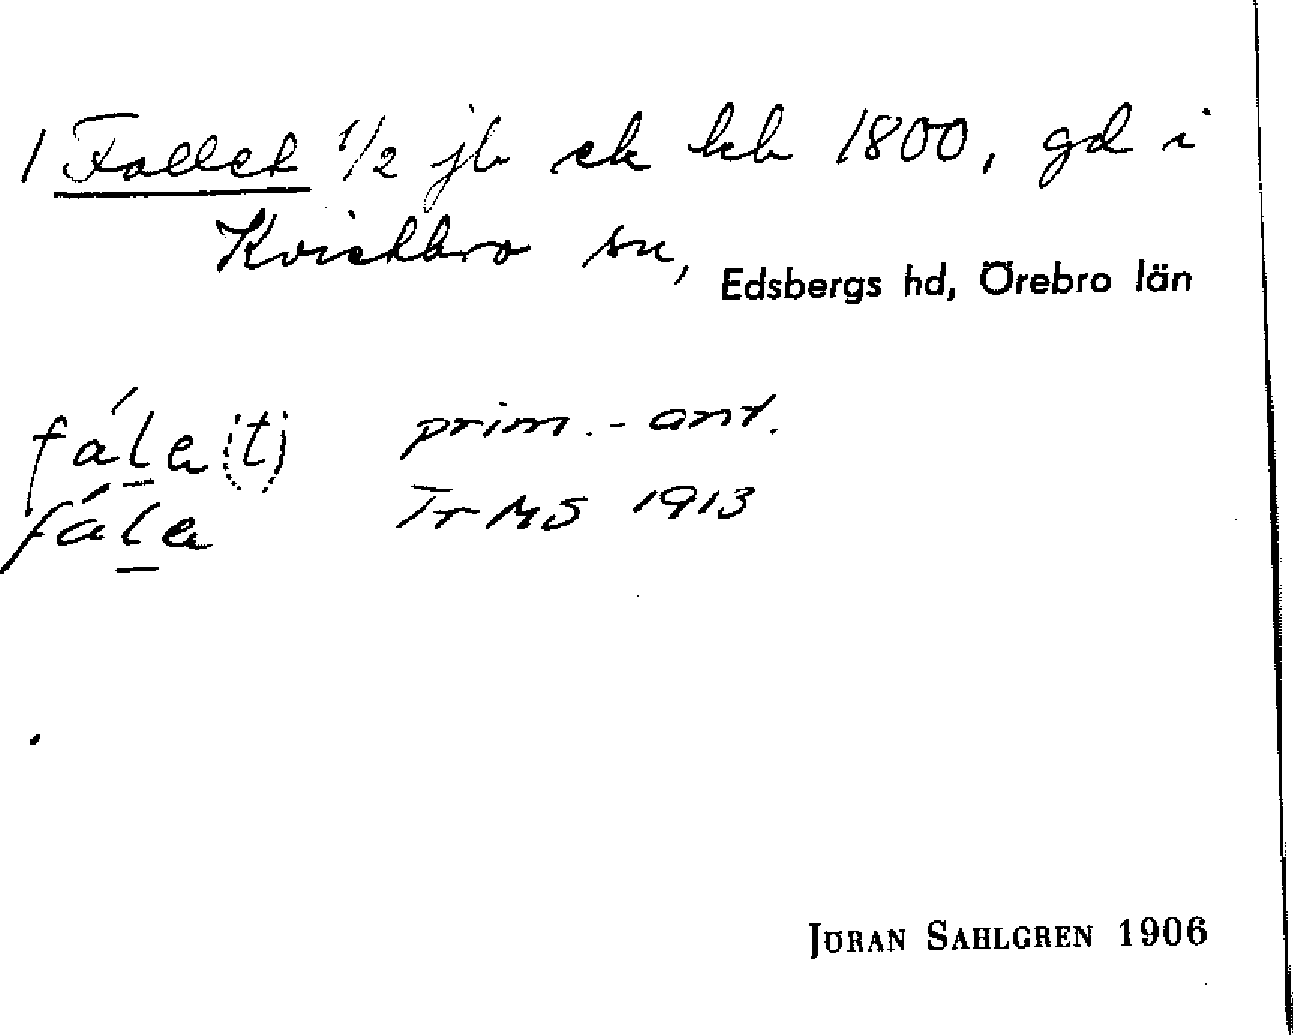 1 Fallet 1/2 jb ek kb 1800, gd i
Kvistbro sn, Edsbergs hd, Örebro län
fála(t) prim.-ant.
fála Tr MS 1913
JÖRAN SAHLGREN 1906